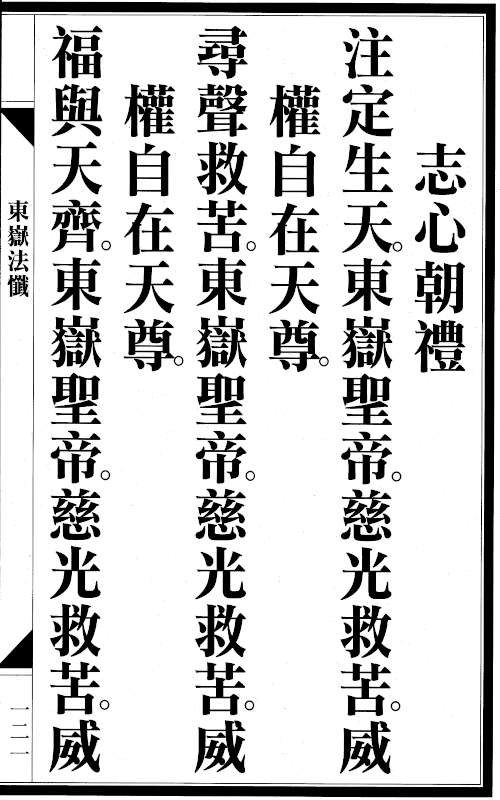 志心朝禮
注定生天。東嶽聖帝。慈光救苦。威
權自在天尊。
尋聲救苦。東嶽聖帝。慈光救苦。威
權自在天尊。
福與天齊。東嶽聖帝。慈光救苦。威
東嶽法懺
一二一